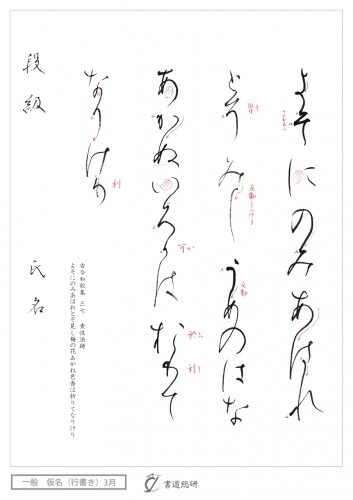 よそにのみあはれ
とそみしうめのはな
曽そ
反動
あかぬいろかはおりて
可か
於お
利り
なりけり
利
段級
氏名
古今和歌集 三七 素性法師
よそにのみあはれとぞ見し梅の花あかぬ色香は折りてなりけり
一般 仮名（行書き）3月
書道総研